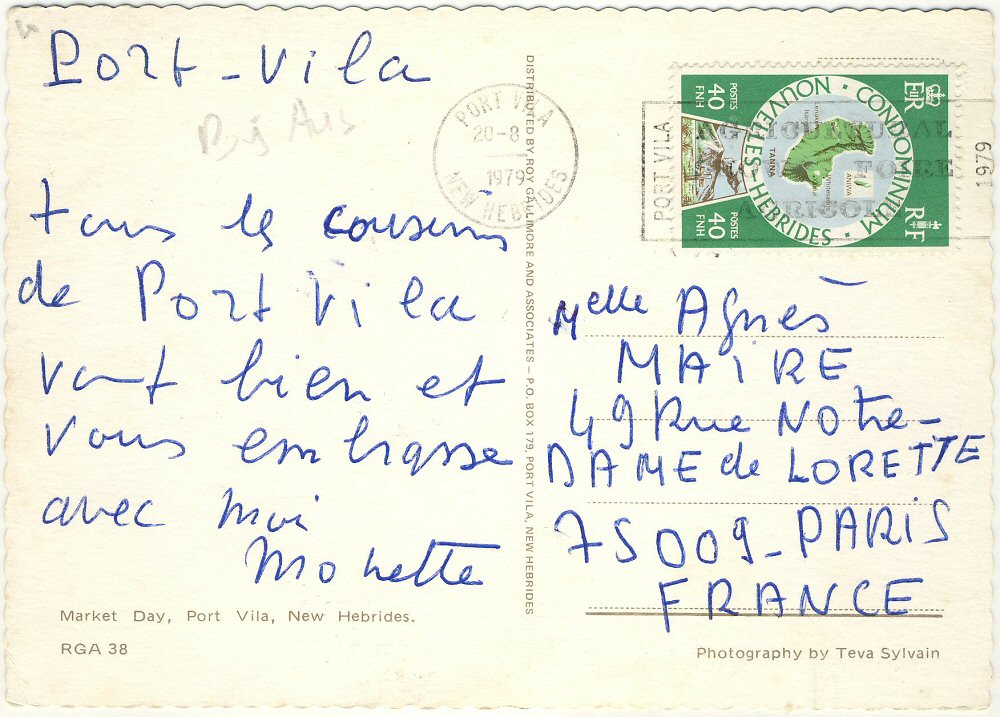 Port-Vila
Tous les cousins
de Port Vila
vont bien et
vous embrasse
avec moi
Monette
Market Day, Port Vila, New Hebrides.
RGA 38
DISTRIBUTED BY ROY GALLIMORE AND ASSOCIATES – P.O. BOX 179, PORT VILA, NEW HEBRIDES
PORT VILA
20-8
1979
NEW HEBRIDES
PORT VILA
1979
CONDOMINIUM
NOUVELLES-HEBRIDES
POSTES
40
FNH
POSTES
40
FNH
EIIR
RF
TANNA
ANIWA
Melle Agnès
MAIRE
49 Rue NOtre-
DAME de LORETTE
75009-PARIS
FRANCE
Photography by Teva Sylvain